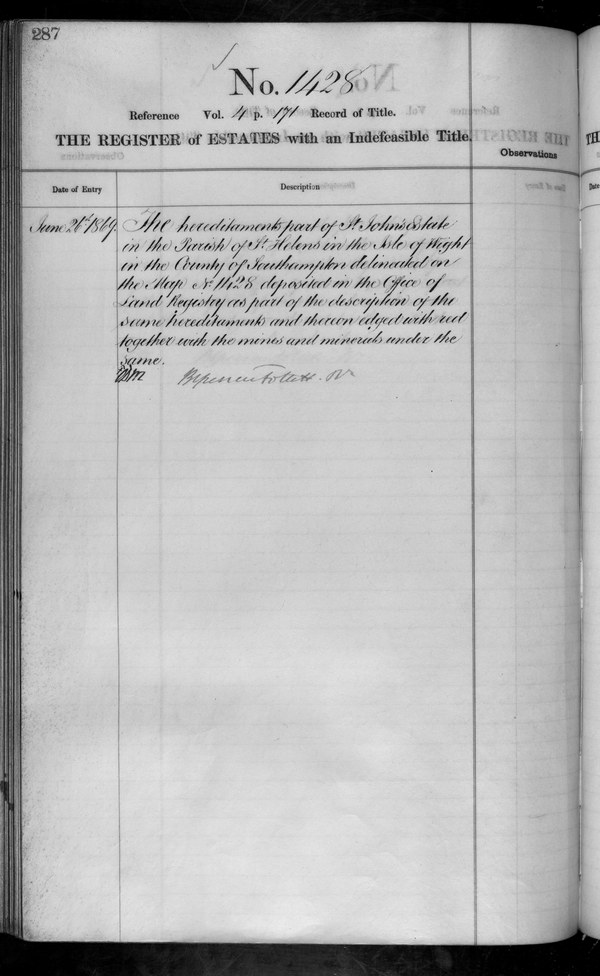 287
No. 1428
Reference Vol. 4 p. 171 Record of Title.
THE REGISTER of ESTATES with an Indefeasible Title.
Observations
Date of Entry
Description
June 26th 1869.
The hereditaments part of St. John's Estate
in the Parish of St. Helens in the Isle of Wight
in the County of Southampton delineated on
the Map No 1428 deposited in the Office of
Land Registry as part of the description of the
same hereditaments and thereon edged with red
together with the mines and minerals under the
same.
Follett
TH
Date